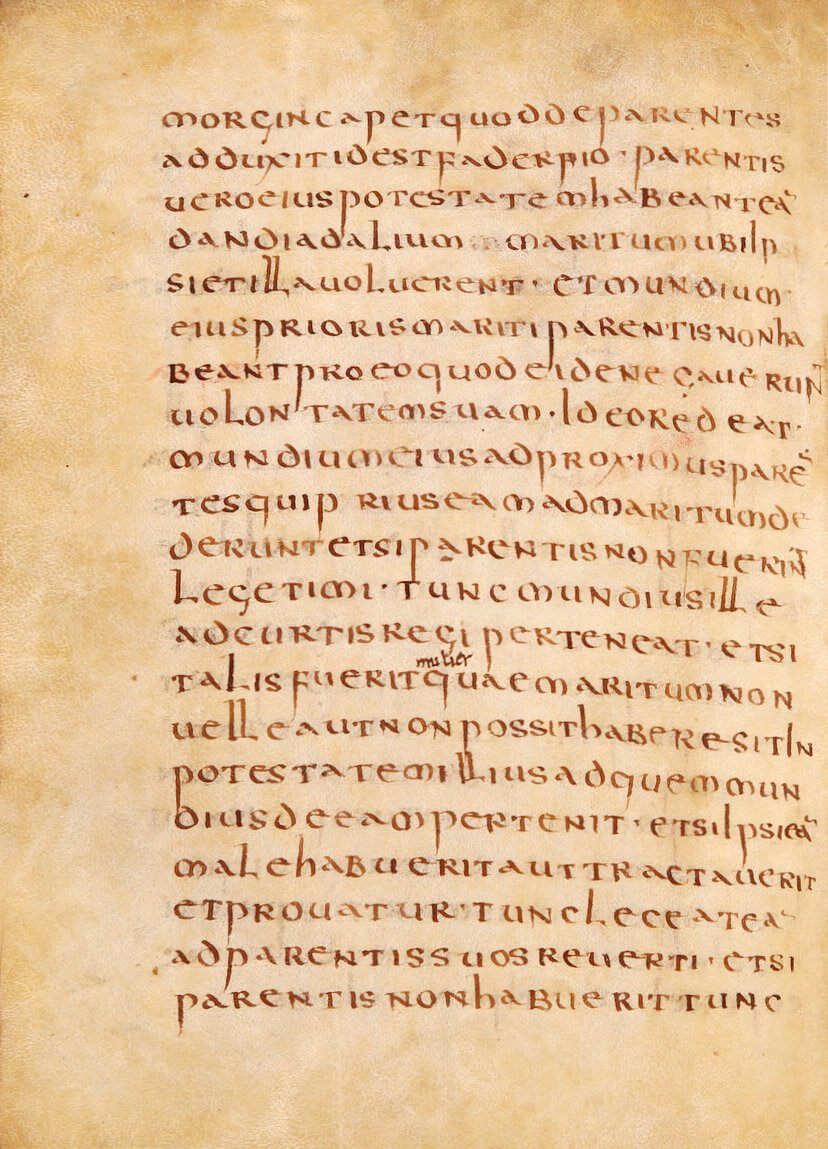 morgincapetquoddeparentes
adduxitidestfaderfio · parentis
ueroeiuspotestatemhabeanteā
dandiadalium maritumubiip
sietillauoluerent · etmundium
eiusprioris maritiparentisnonha
beantproeoquodeidenegauerun̄
uolontatemsuam · Ideoredeat ·
mundiumeiusadproximusparē
tesquipriuseamadmaritumde
derunt etsiparentisnonfuerin̄
legetimi · tuncmundiusille
adcurtisregiperteneat · etsi
talisfuerit mulier quaemaritumnon
uelleautnonpossithaberesitin
potestatemilliusadquemmun
diusdeeampertenit · etsiipsieā
malehabueritauttractauerit
etprouatur · tunclecea teā
adparentissuosreuerti · etsi
parentisnonhabuerittunc